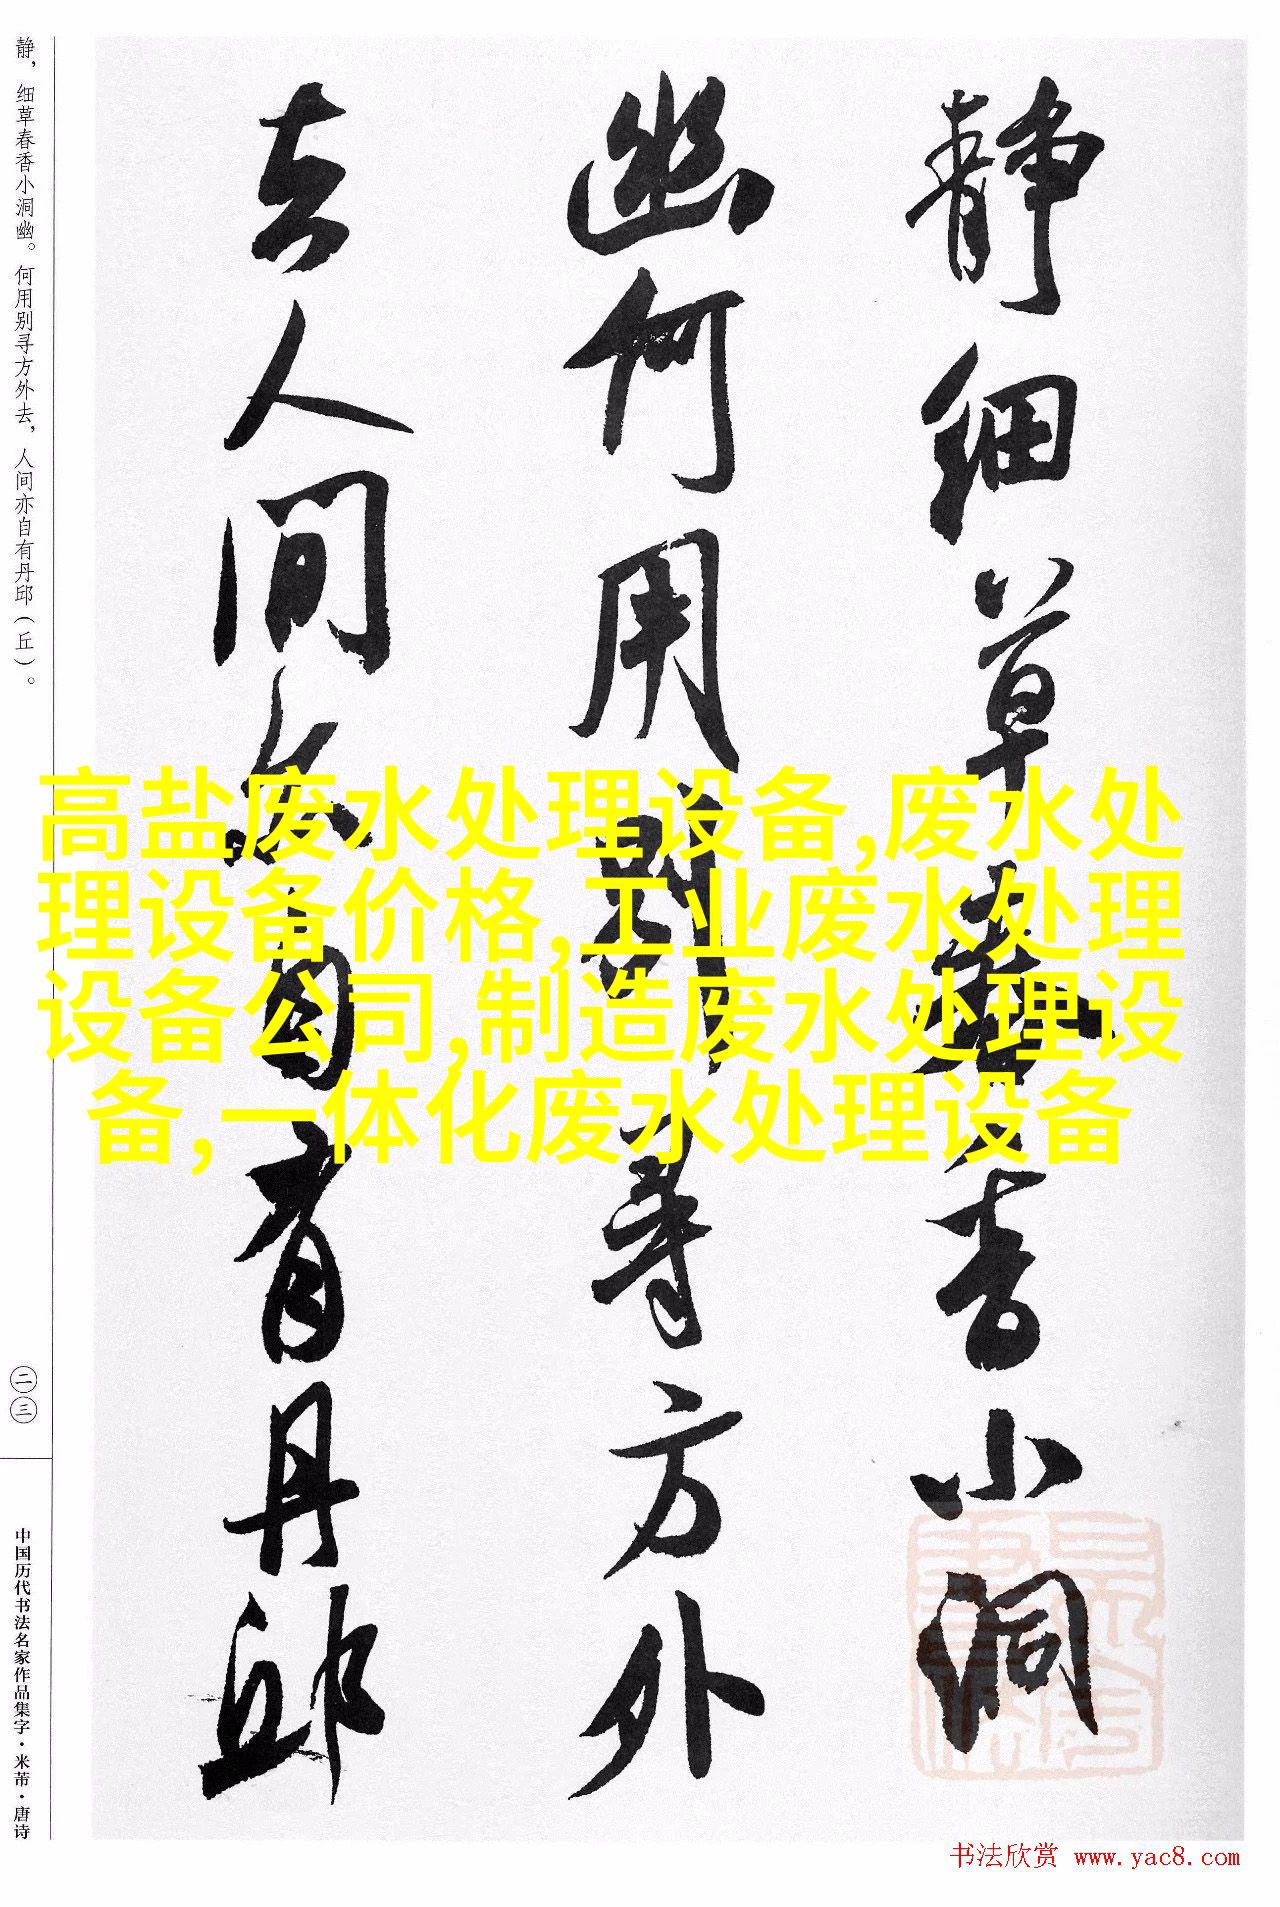 静细草春香小洞
幽何用别寻方外
去人间亦自有丹邱
静，细草春香小洞幽。何用别寻方外去，人间亦自有丹邱（丘）。
二三
中国历代书法名家作品集字·米芾·唐诗
高盐废水处理设备,废水处
理设备价格,工业废水处理
设备公司,制造废水处理设
备,一体化废水处理设备
书法欣赏 www.yac8.com